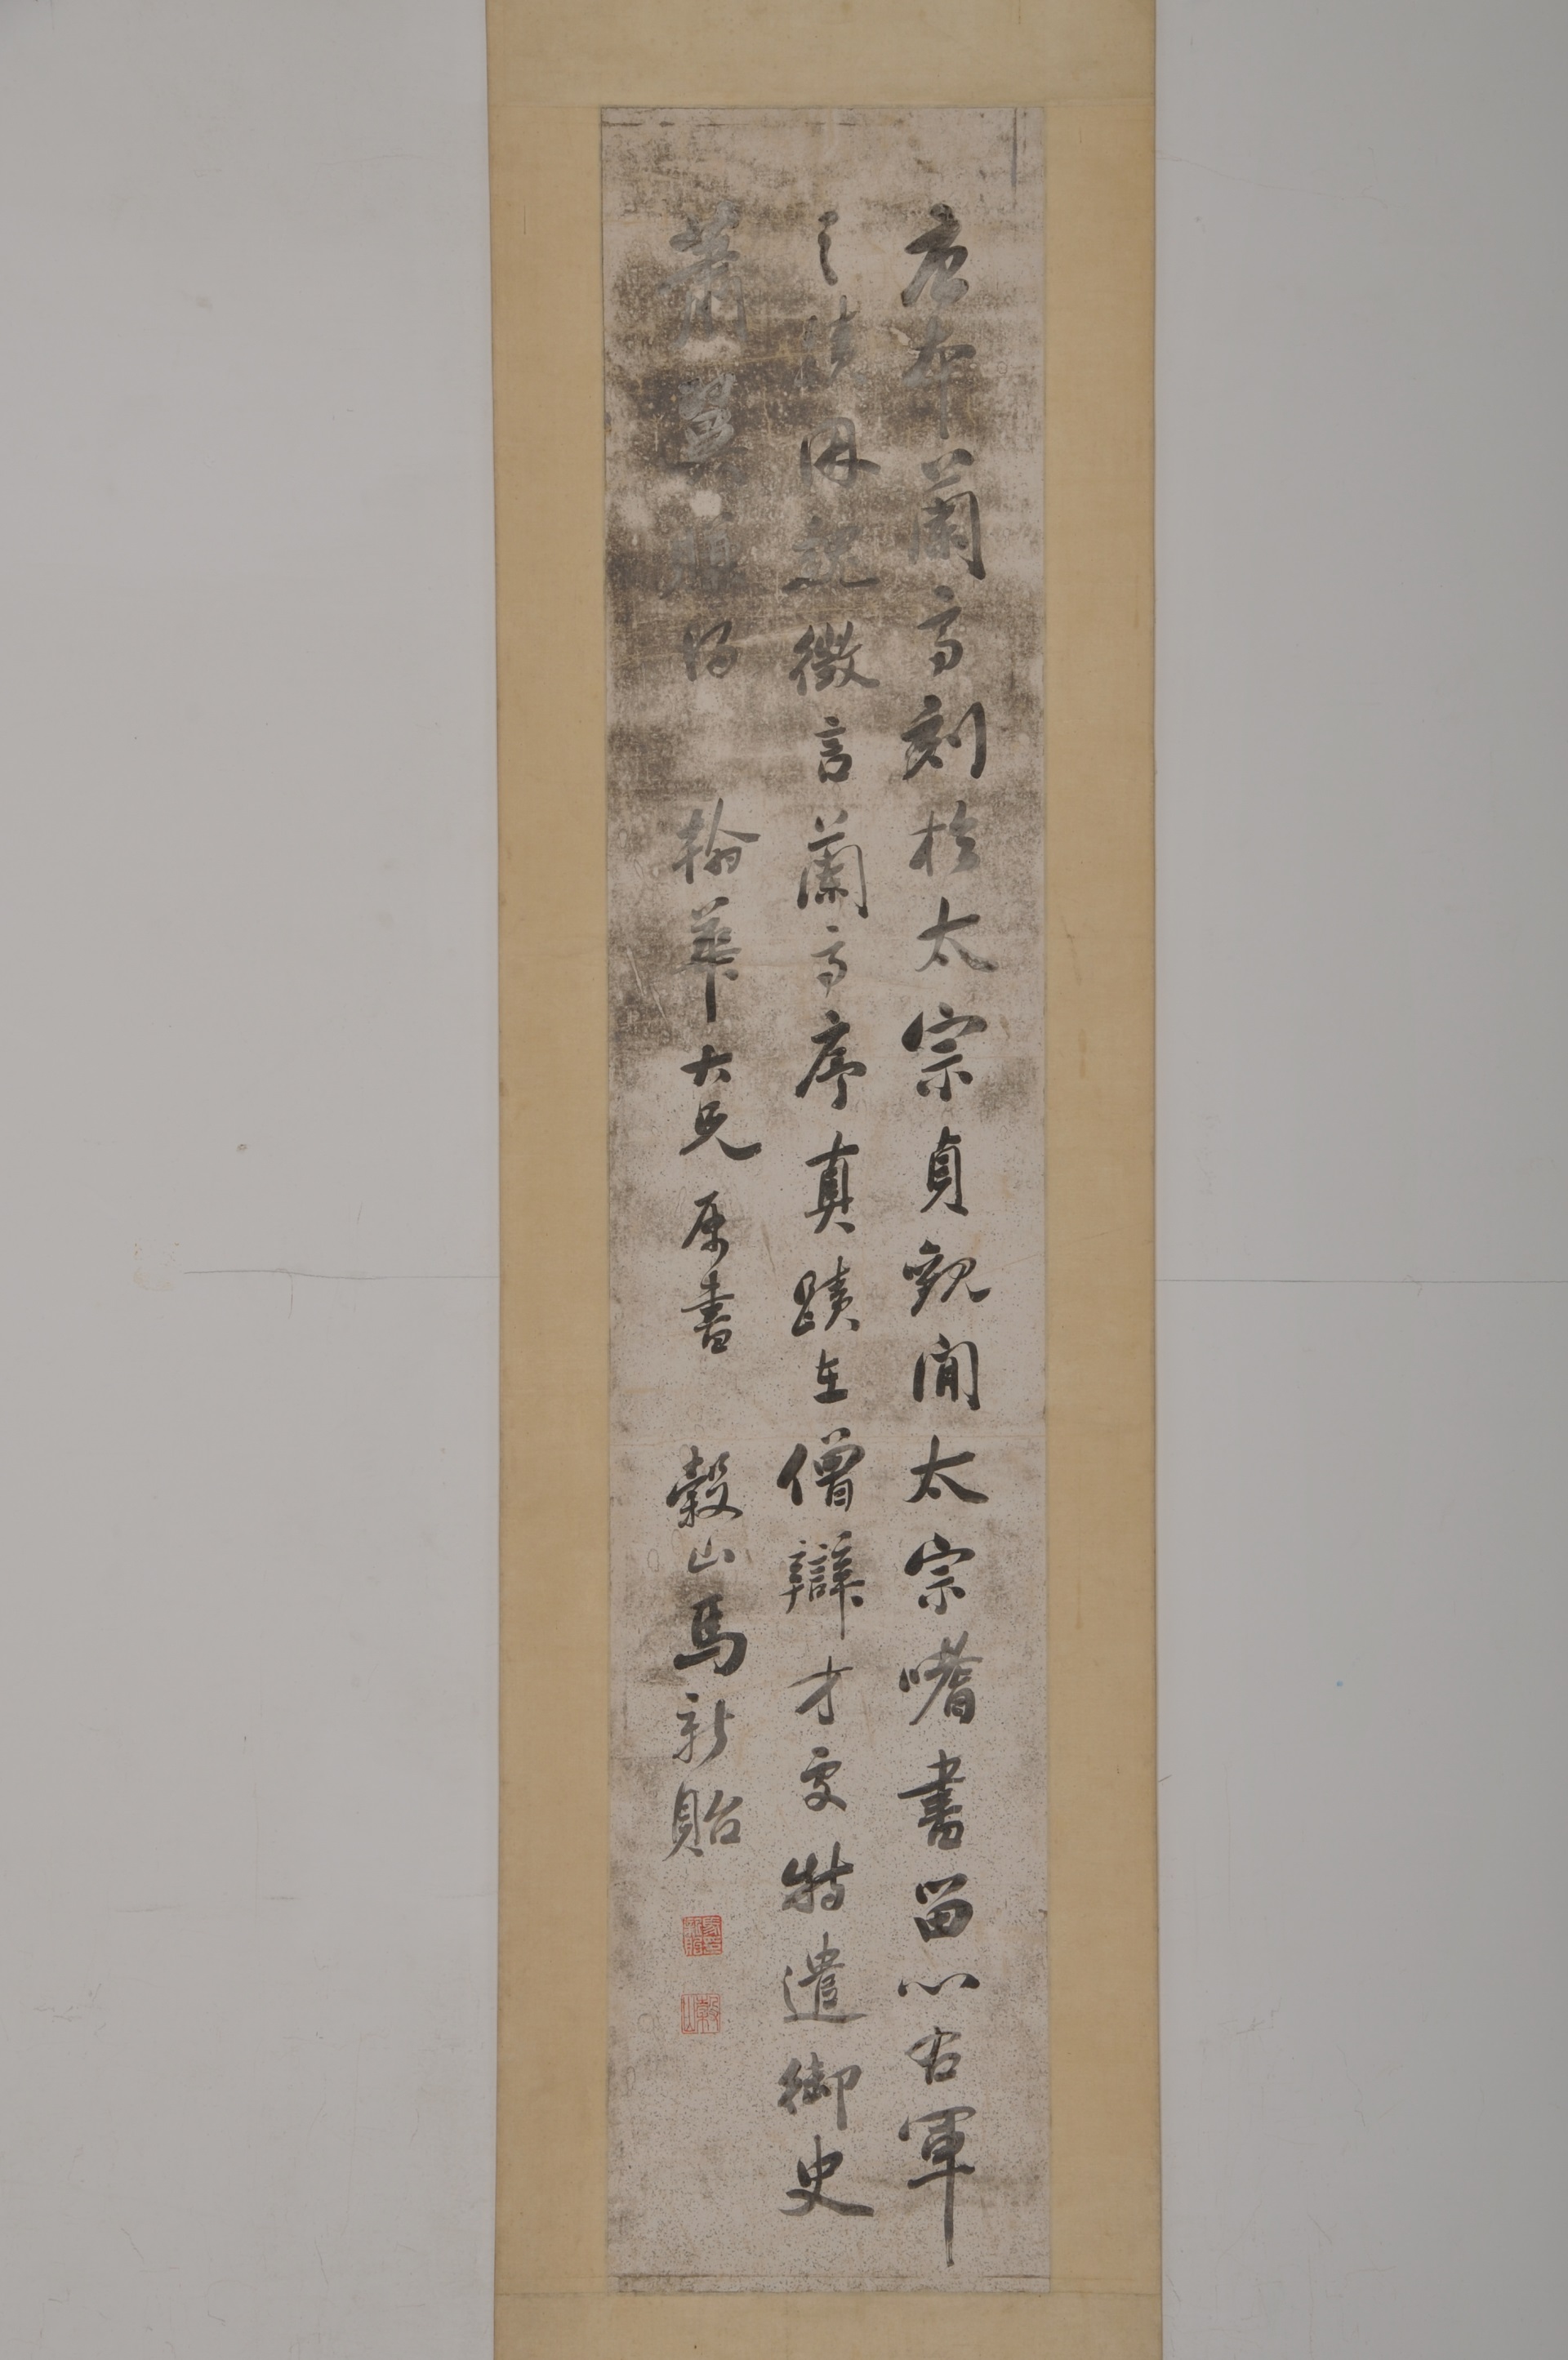 唐本蘭亭刻於太宗貞觀間太宗嗜書留心右軍
之蹟因魏徵言蘭亭序真蹟在僧辯才處特遣御史
蕭翼賺得
翰華大兄屬書
穀山馬新貽
馬印新貽
穀山